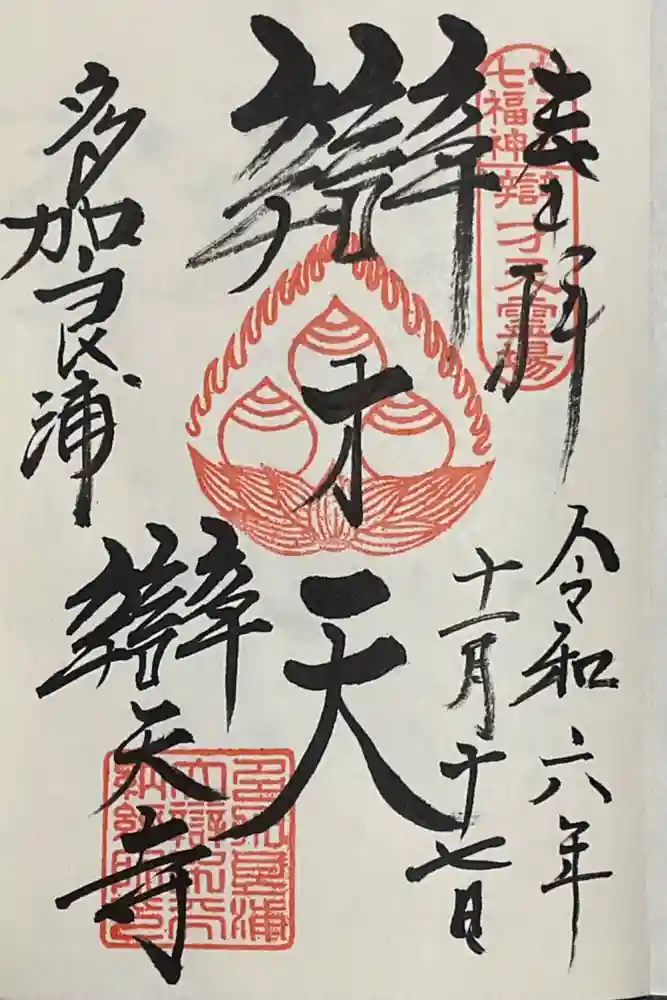 奉拝
七福神
辯才天靈場
令和六年
十一月十七日
辯才天
多加良浦
辯天寺